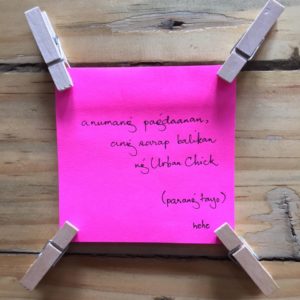 anumang pagdaanan,
ang sarap balikan
ng Urban Chick
(parang tayo)
hehe